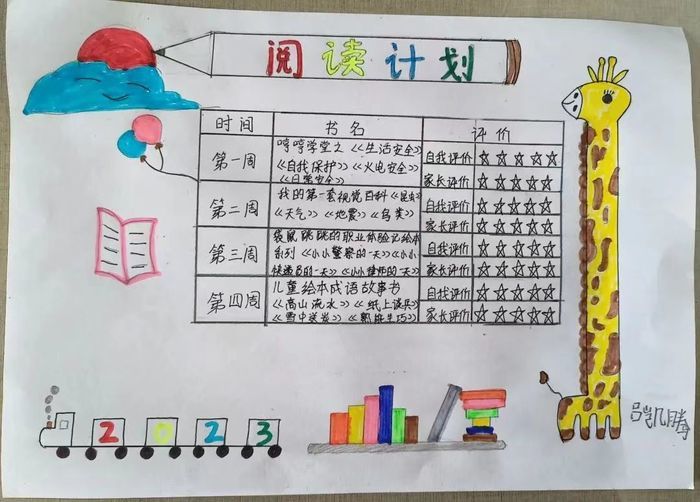 阅读计划
时间 书名 评价
第一周 哼哼学堂之《生活安全》 自我评价 ☆☆☆☆☆
《自我保护》《火电安全》
《日常安全》 家长评价 ☆☆☆☆☆
第二周 我的第一套视觉百科《昆虫》 自我评价 ☆☆☆☆☆
《天气》《地震》《鸟类》 家长评价 ☆☆☆☆☆
第三周 袋鼠跳跳的职业体验记绘本 自我评价 ☆☆☆☆☆
系列《小小警察的一天》《小小
快递员的一天》《小小律师的一天》 家长评价 ☆☆☆☆☆
第四周 儿童绘本成语故事书 自我评价 ☆☆☆☆☆
《高山流水》《纸上谈兵》
《雪中送炭》《熟能生巧》 家长评价 ☆☆☆☆☆
2023
吕凯腾